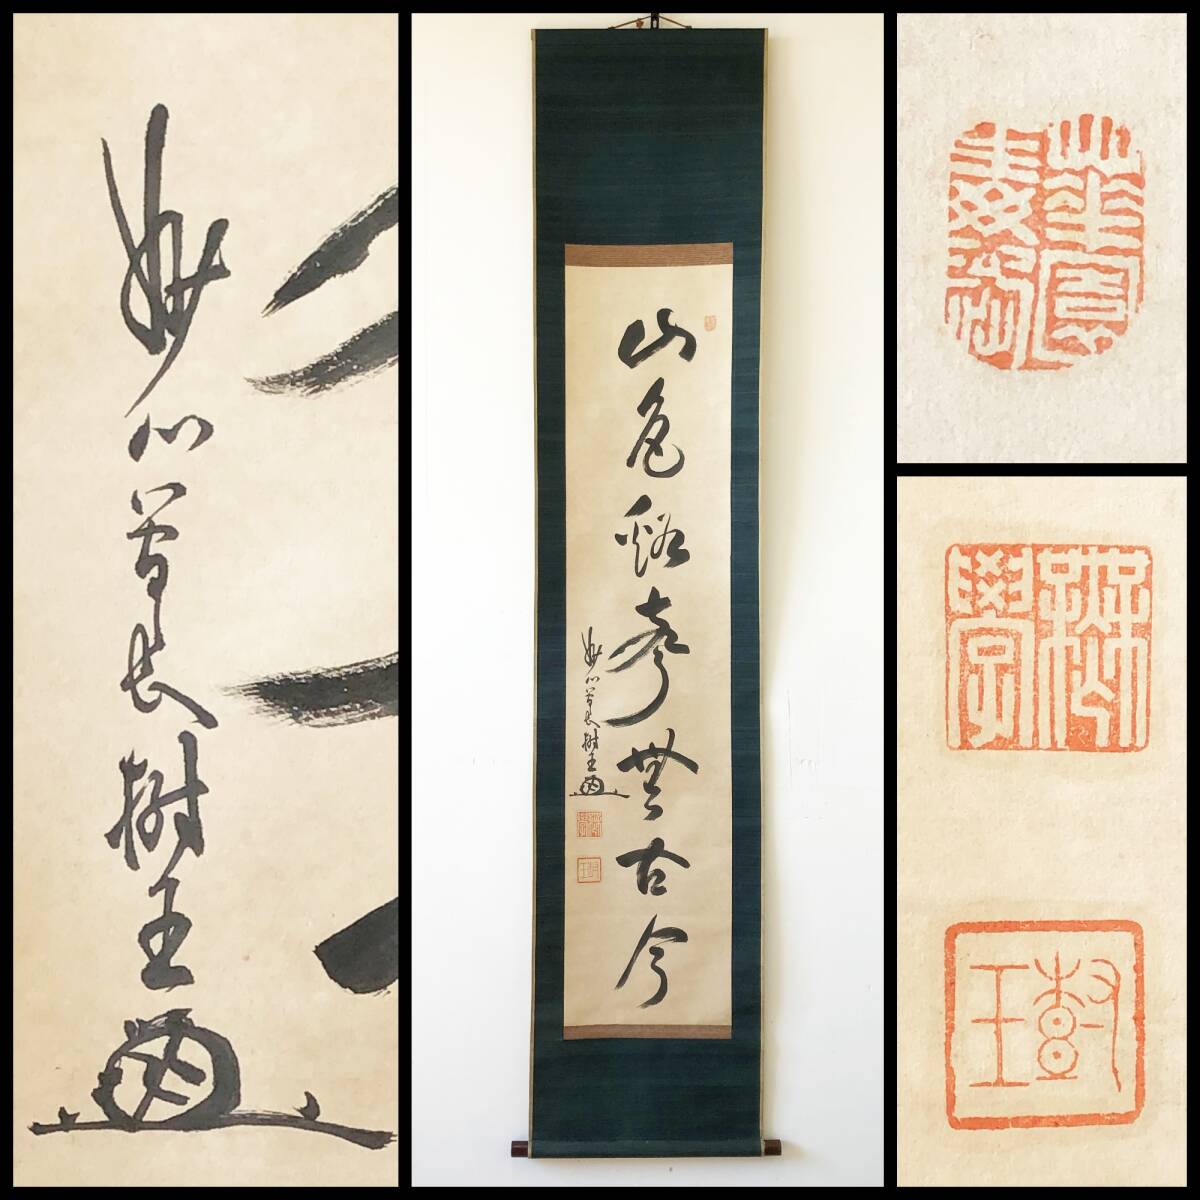 妙心管長樹王
山色谿聲無古今
妙心管長樹王
樹王
樹王